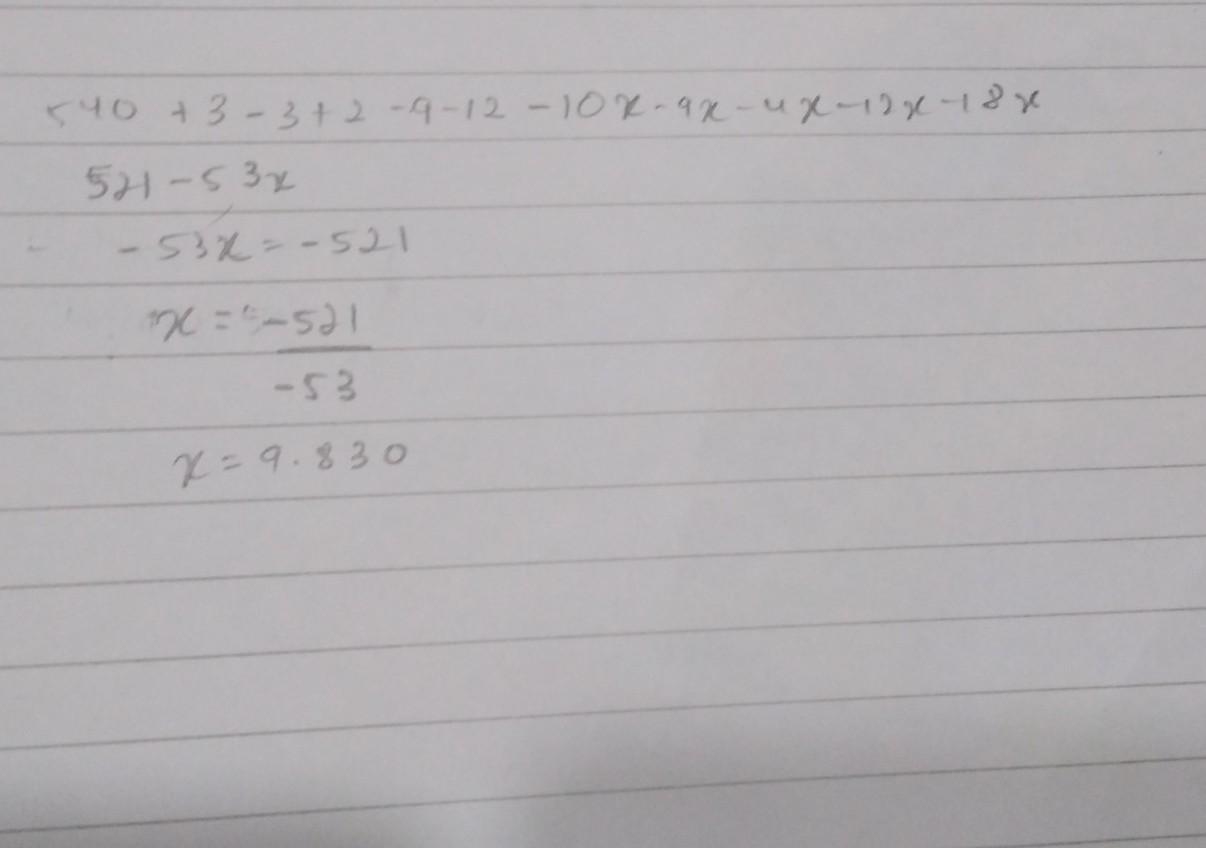 540 + 3 - 3 + 2 - 9 - 12 - 10x - 9x - 4x - 12x - 18x
521 - 53x
- 53x = - 521
x = -521
-53
x = 9.830